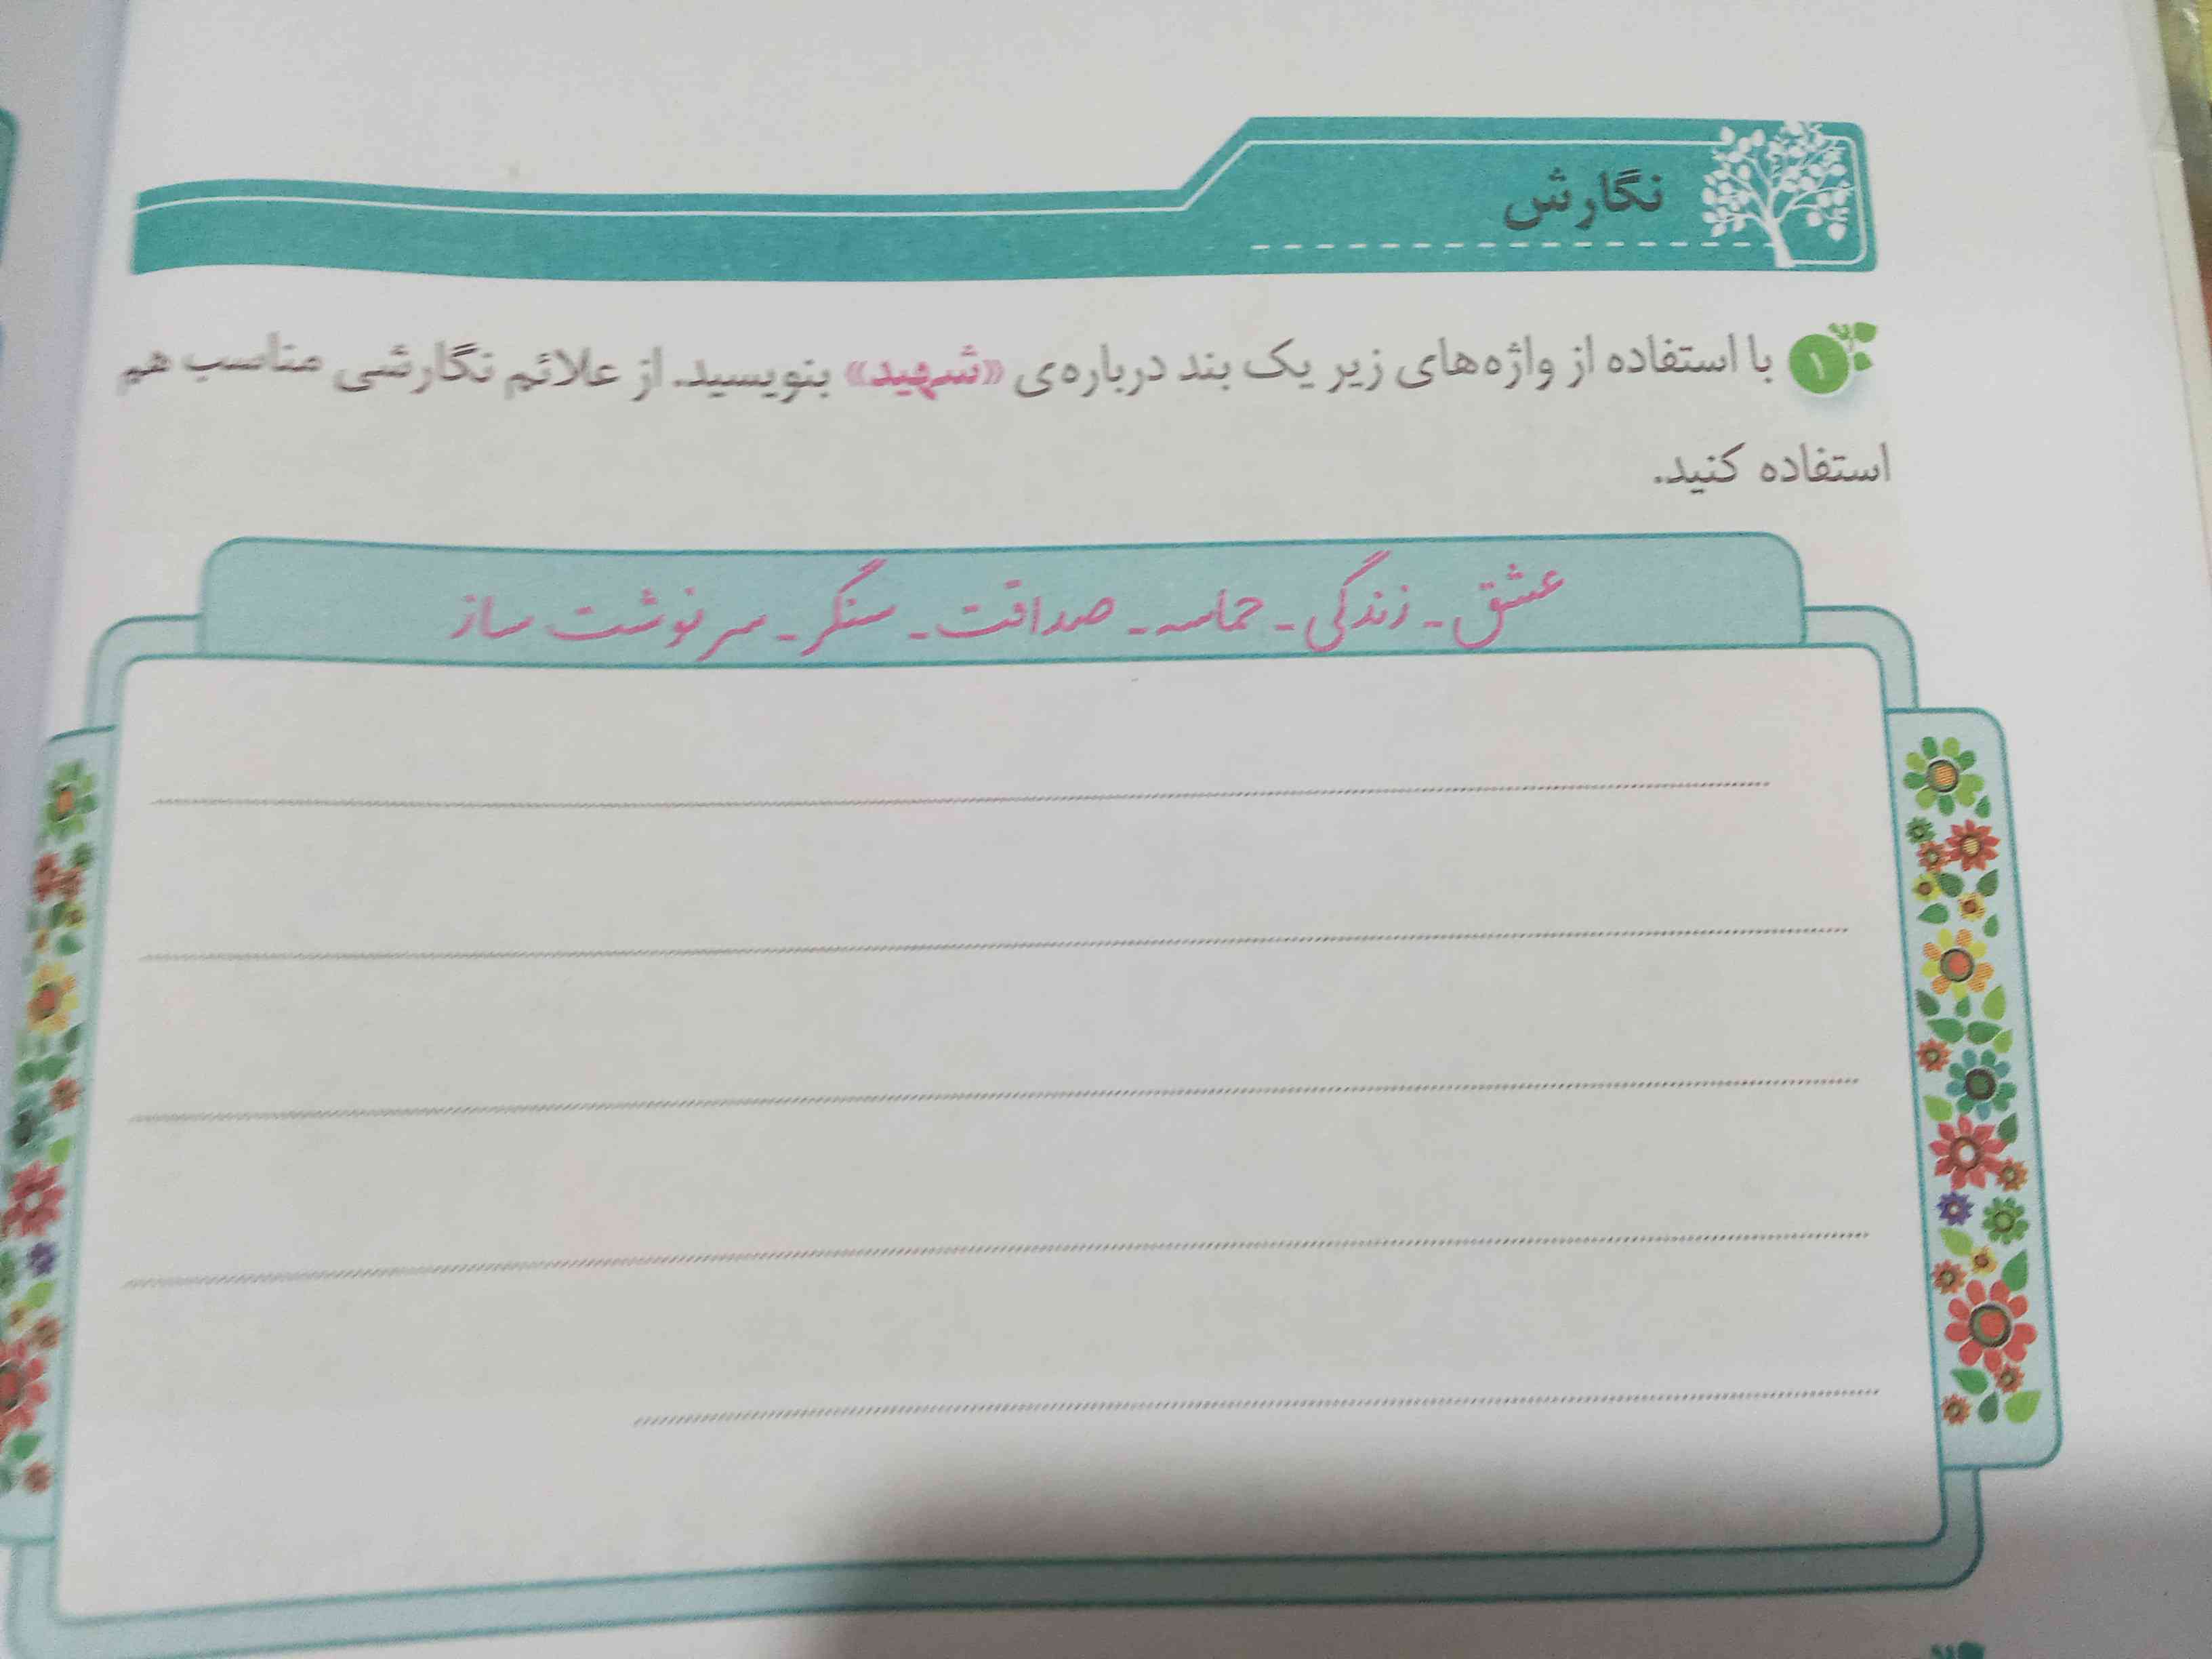 نگارش
۱ با استفاده از واژه‌های زیر یک بند درباره‌ی «شهید» بنویسید. از علائم نگارشی مناسب هم
استفاده کنید.
عشق - زندگی - حماسه - صداقت - سنگر - سرنوشت ساز